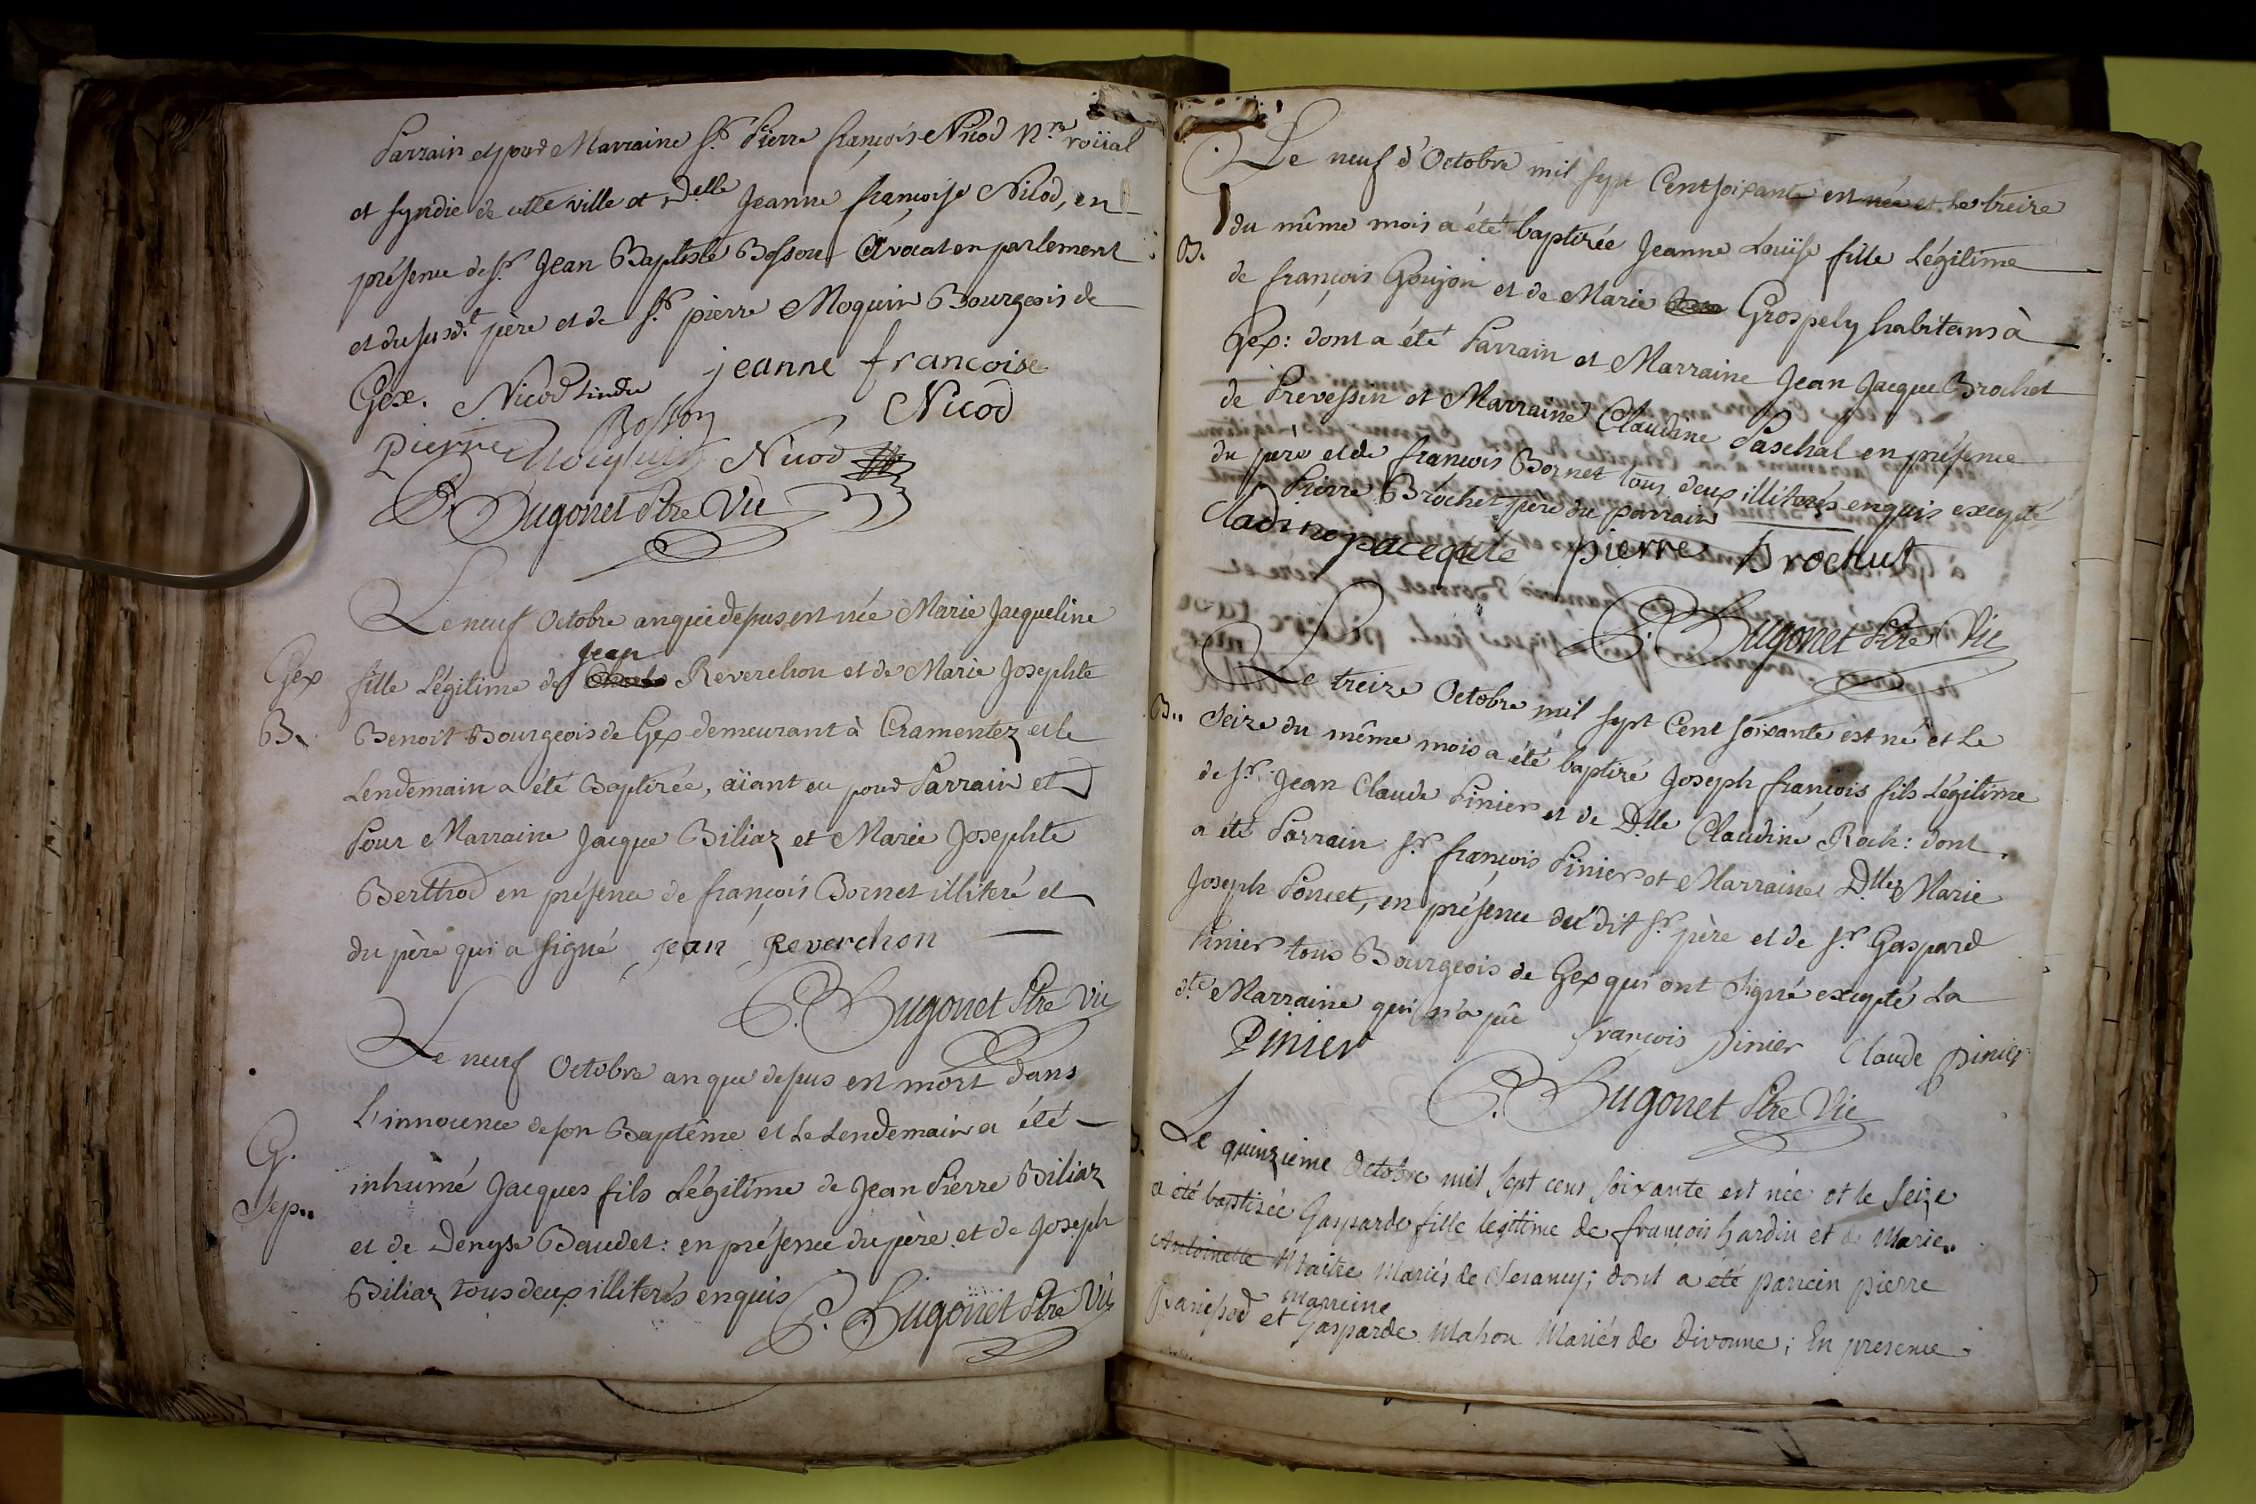 Parrain et pour Marraine Sr. Pierre françois Nicod Nre roïial
et syndic de cette ville et Delle Jeanne françoise Nicod, en
présence de Sr. Jean Baptiste Bosson Avocat en parlement
et du susdt. père et de Sr. pierre Moquin Bourgeois de
Gex. Nicod sindic jeanne francoise
Bosson Nicod
pierre Moquin Nicod
P. Hugonet Ptre Vic
Le neuf Octobre an que depus est née Marie Jacqueline
Jean
Gex fille Légitime de Reverchon et de Marie Josephte
B. Benoit Bourgeois de Gex demeurant à Cramentez et le
Lendemain a été Baptizée, aïant eu pour Parrain et
Pour Marraine Jacque Biliaz et Marie Josephte
Berthod en présence de françois Bornet illiteré et
du père qui a signé jean Reverchon
P. Hugonet Ptre Vic
Le neuf Octobre an que depus est mort dans
L'innocence de son Baptême et Le Lendemain a été
G. inhumé Jacques fils Légitime de Jean Pierre Biliaz
Sep.. et de Denyse Baudet: en présence du père et de Joseph
Biliaz tous deux illiterés enquis
P. Hugonet Ptre Vic
Le neuf d'Octobre mil sept Cent soixante est née et Le treize
B. du même mois a été baptizée Jeanne Louïse fille Légitime
de françois Goujon et de Marie Grospely habitans à
Gex: dont a été Parrain et Marraine Jean Jacque Brochet
de Prevessin et Marraine Claudine Paschal en présence
du père et de françois Bornet tous deux illiterés enquis excepté
Pierre Brochet père du parrain
pierre Brochut
P. Hugonet Ptre Vic
Le treize Octobre mil sept Cent soixante est né et Le
B.. seize du même mois a été baptizé Joseph françois fils Légitime
de Sr. Jean Claude Pinier et de Dlle Claudine Roch: dont
a été Parrain Sr. françois Pinier et Marraine Dlle Marie
Joseph Poncet, en présence du dit Sr. père et de Sr. Gaspard
Pinier tous Bourgeois de Gex qui ont signé excepté La
dte. Marraine qui n'a pû françois pinier Claude pinier
Pinier
P. Hugonet Ptre Vic
Le quinzieme Octobre mil sept cens soixante est née et le seize
a été baptisée Gasparde fille legitime de françois hardin et de Marie..
Antoinette Maitre Mariés de Vesancy; dont a eté parrein pierre
marreine
panissod et Gasparde Mahon Mariés de Divonne; En presence